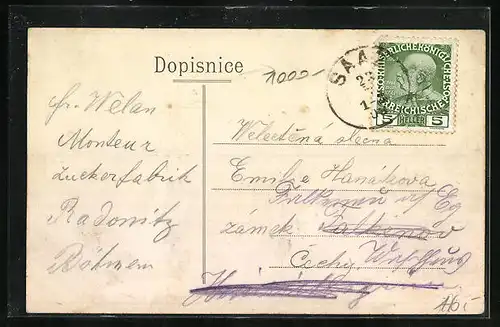 Dopisnice
1000-
SAAZ
KAISERLICHEKÖNIGLICHE
ÖSTERREICHISCHE
5 HELLER 5
Fr. Welan
Monteur
Zuckerfabrik
Radonitz
Böhmen
Velectěná slečna
Emilie Hanáková
Falkenau a/ Eg
zámek Falknov
Čechy